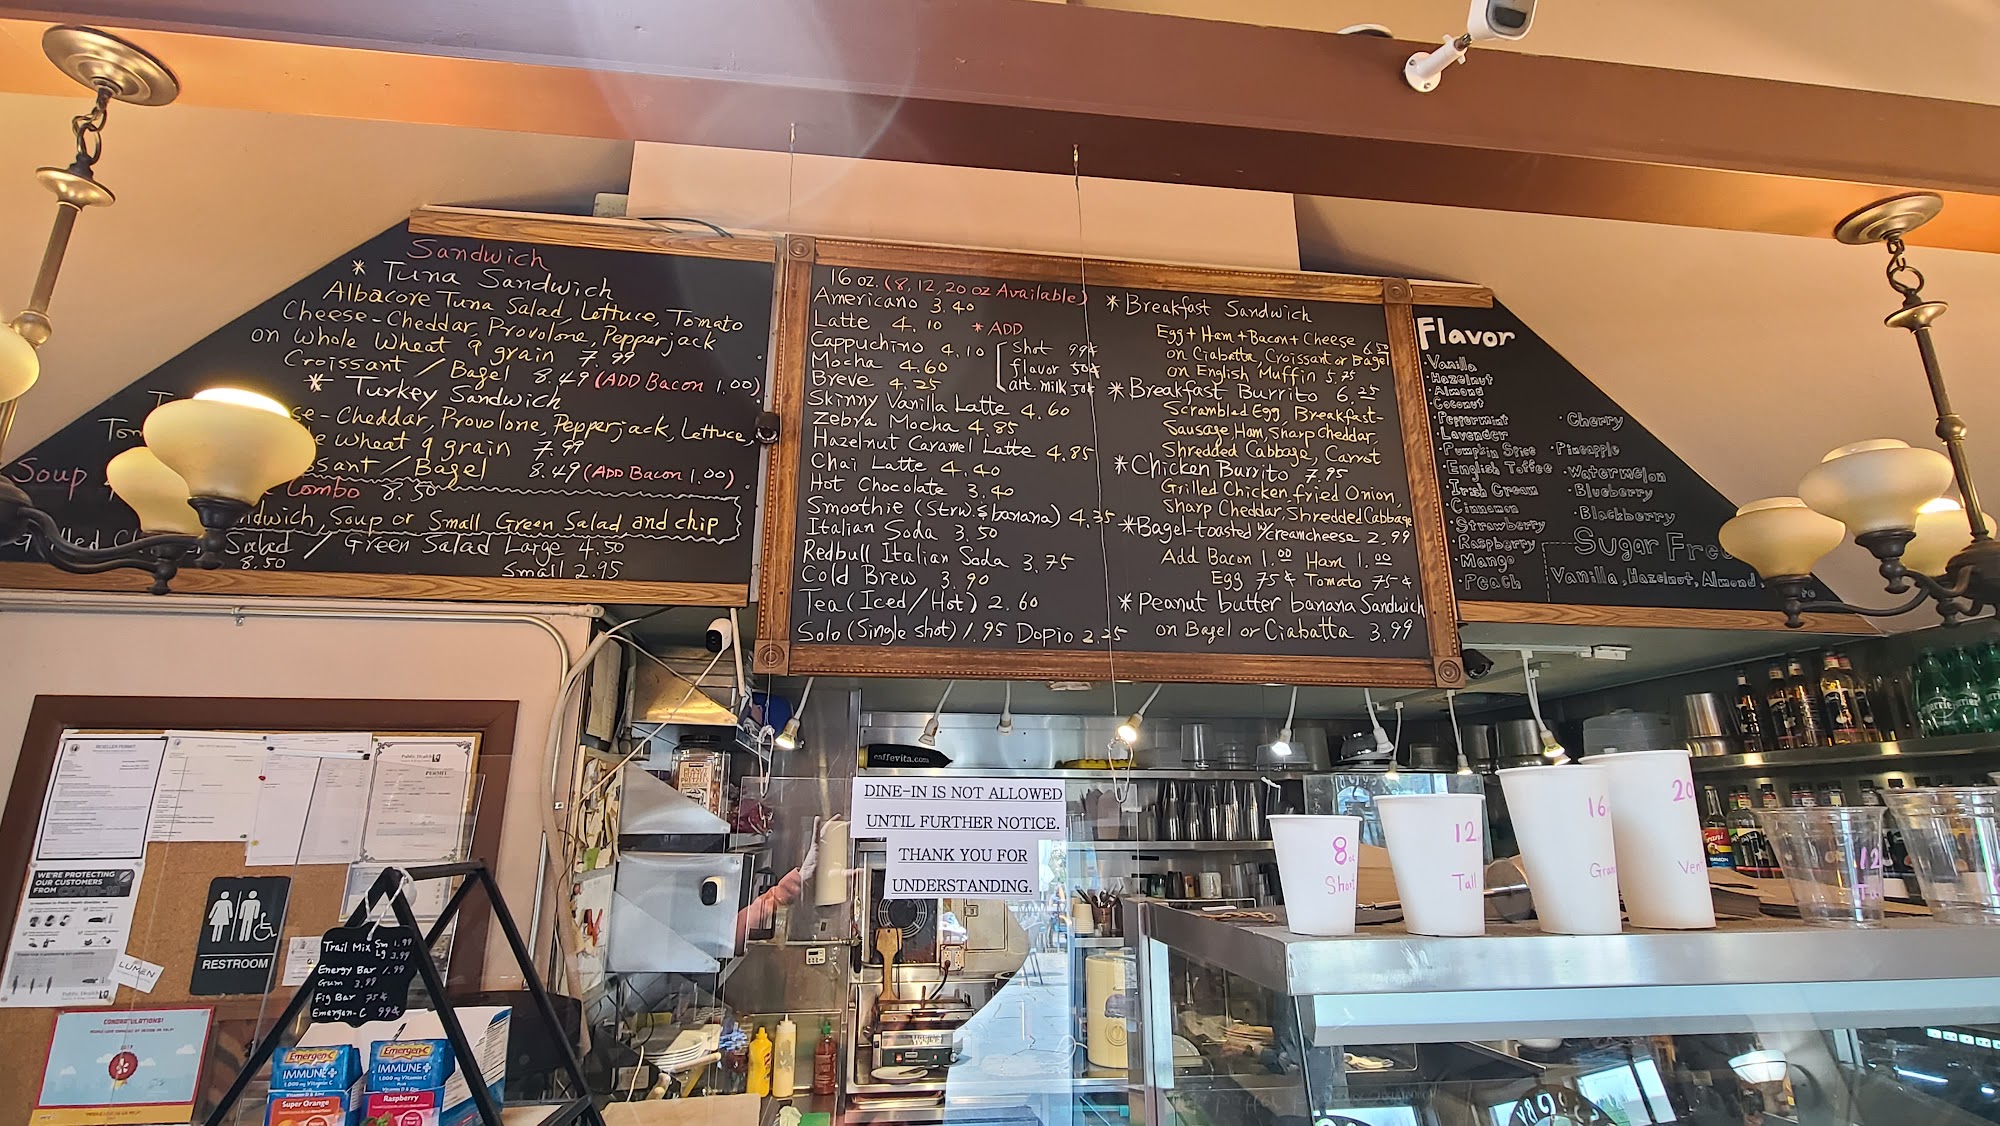 Sandwich
* Tuna Sandwich
Albacore Tuna Salad, Lettuce, Tomato
Cheese-Cheddar, Provolone, Pepperjack
on Whole Wheat 9 grain 7.99
Croissant / Bagel 8.49 (ADD Bacon 1.00)
* Turkey Sandwich
Cheddar, Provolone, Pepperjack, Lettuce,
Wheat 9 grain 7.99
/ Bagel 8.49 (ADD Bacon 1.00)
Soup Combo 8.50
Soup or Small Green Salad and chip
Salad / Green Salad Large 4.50
8.50 Small 2.95
16 oz. (8, 12, 20 oz Available)
Americano 3.40
Latte 4.10 * ADD
Cappuchino 4.10 Shot 99¢
Mocha 4.60 flavor 50¢
Breve 4.25 alt. milk 50¢
Skinny Vanilla Latte 4.60
Zebra Mocha 4.85
Hazelnut Caramel Latte 4.85
Chai Latte 4.40
Hot Chocolate 3.40
Smoothie (Strw. & banana) 4.35
Italian Soda 3.50
Redbull Italian Soda 3.75
Cold Brew 3.90
Tea (Iced/Hot) 2.60
Solo (Single shot) 1.95 Dopio 2.25
* Breakfast Sandwich
Egg + Ham + Bacon + Cheese 6.50
on Ciabatta, Croissant or Bagel
on English Muffin 5.75
* Breakfast Burrito 6.25
Scrambled Egg, Breakfast-
Sausage, Ham, Sharp Cheddar,
Shredded Cabbage, Carrot
* Chicken Burrito 7.95
Grilled Chicken, fried Onion,
Sharp Cheddar, Shredded Cabbage
* Bagel-toasted w/creamcheese 2.99
Add Bacon 1.00 Ham 1.00
Egg 75¢ Tomato 75¢
* Peanut butter banana Sandwich
on Bagel or Ciabatta 3.99
Flavor
· Vanilla
· Hazelnut
· Almond
· Coconut
· Peppermint
· Lavender
· Pumpkin Spice
· English Toffee
· Irish Cream
· Cinnamon
· Strawberry
· Raspberry
· Mango
· Peach
· Cherry
· Pineapple
· Watermelon
· Blueberry
· Blackberry
Sugar Free
Vanilla, Hazelnut, Almond,
caffevita.com
DINE-IN IS NOT ALLOWED
UNTIL FURTHER NOTICE.
THANK YOU FOR
UNDERSTANDING.
8 oz
Short
12
Tall
16
20
12
WE'RE PROTECTING
OUR CUSTOMERS
FROM COVID-19
LUMEN
RESTROOM
Public Health
PERMIT
RESELLER PERMIT
CONGRATULATIONS!
Trail Mix Sm 1.99
Lg 3.99
Energy Bar 1.99
Gum 3.99
Fig Bar 75¢
Emergen-C 99¢
Emergen-C
IMMUNE+
Super Orange
Emergen-C
IMMUNE+
Raspberry